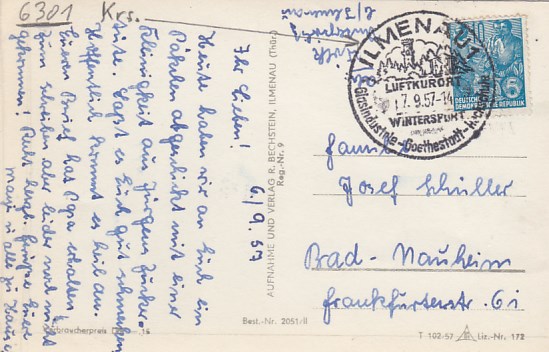 6301 Krs.
ILMENAU 1
LUFTKURORT
7.9.57-14
WINTERSPORT
Glasindustrie-Goethestadt-
DEUTSCHE
DEMOKRATISCHE REPUBLIK
6
6/9.57
Ihr Lieben!
Heute haben wir an Euch ein
Päkchen abgeschickt mit einer
Kleinigkeit aus Jürgens Zucker-
tüte. Lasst es Euch gut schmecken
Hoffentlich kommt es heil an.
Euern Brief hat Papa erhalten,
zum schreiben aber leider noch nicht
gekommen! Recht herzl. Grüsse Euer
alle
AUFNAHME UND VERLAG R. BECHSTEIN, ILMENAU (Thür.)
Reg.-Nr. 9
Familie
Josef Schüller
Bad-Nauheim
Frankfurterstr. 61
Verbraucherpreis DM -.15
Best.-Nr. 2051/II
T 102-57 Liz.-Nr. 172